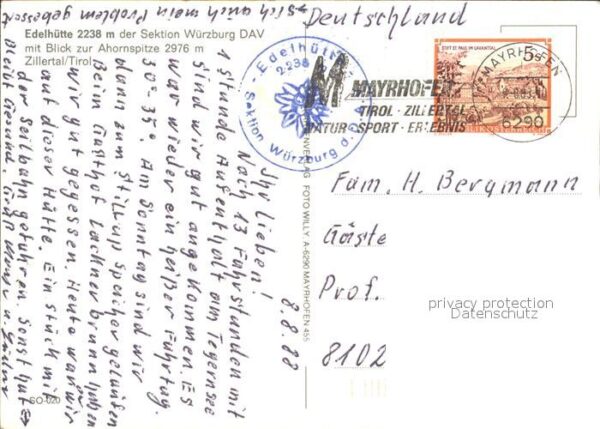 Edelhütte 2238 m der Sektion Würzburg DAV
mit Blick zur Ahornspitze 2976 m
Zillertal/Tirol
8.8.88
Ihr Lieben!
Nach 13 Fahrstunden mit
1 Stunde Aufenthalt am Tegernsee
sind wir gut angekommen. Es
war wieder ein heißer Fahrtag,
30-35°. Am Sonntag sind wir
dann zum Stillup Speicher gelaufen
Beim Gasthof Lacknerbrunn haben
wir gut gegessen. Heute waren wir
auf dieser Hütte. Ein Stück mit
der Seilbahn gefahren. Sonst hat
sich auch mein Problem gebessert
Bleibt Gesund. Gruß
SO-020
Edelhütte
2238
Sektion Würzburg d.
FOTO WILLY A-6290 MAYRHOFEN 455
MAYRHOFEN
TIROL · ZILLERTAL
NATUR · SPORT · ERLEBNIS
MAYRHOFEN
6290
STIFT ST. PAUL IM LAVANTTAL
5
Deutschland
Fam. H. Bergmann
Gäste
Prof.
8102
privacy protection
Datenschutz